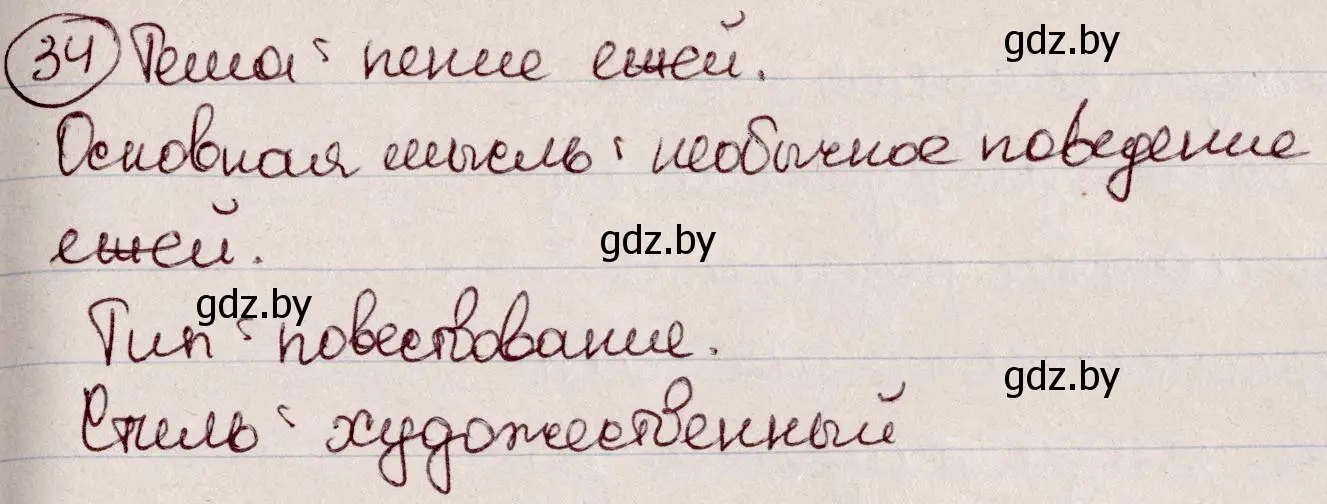 34 Тема: пение ежей. gdz.by
Основная мысль: необычное поведение
ежей. gdz.by
gdz.by
Тип: повествование.
gdz.by
Стиль: художественный